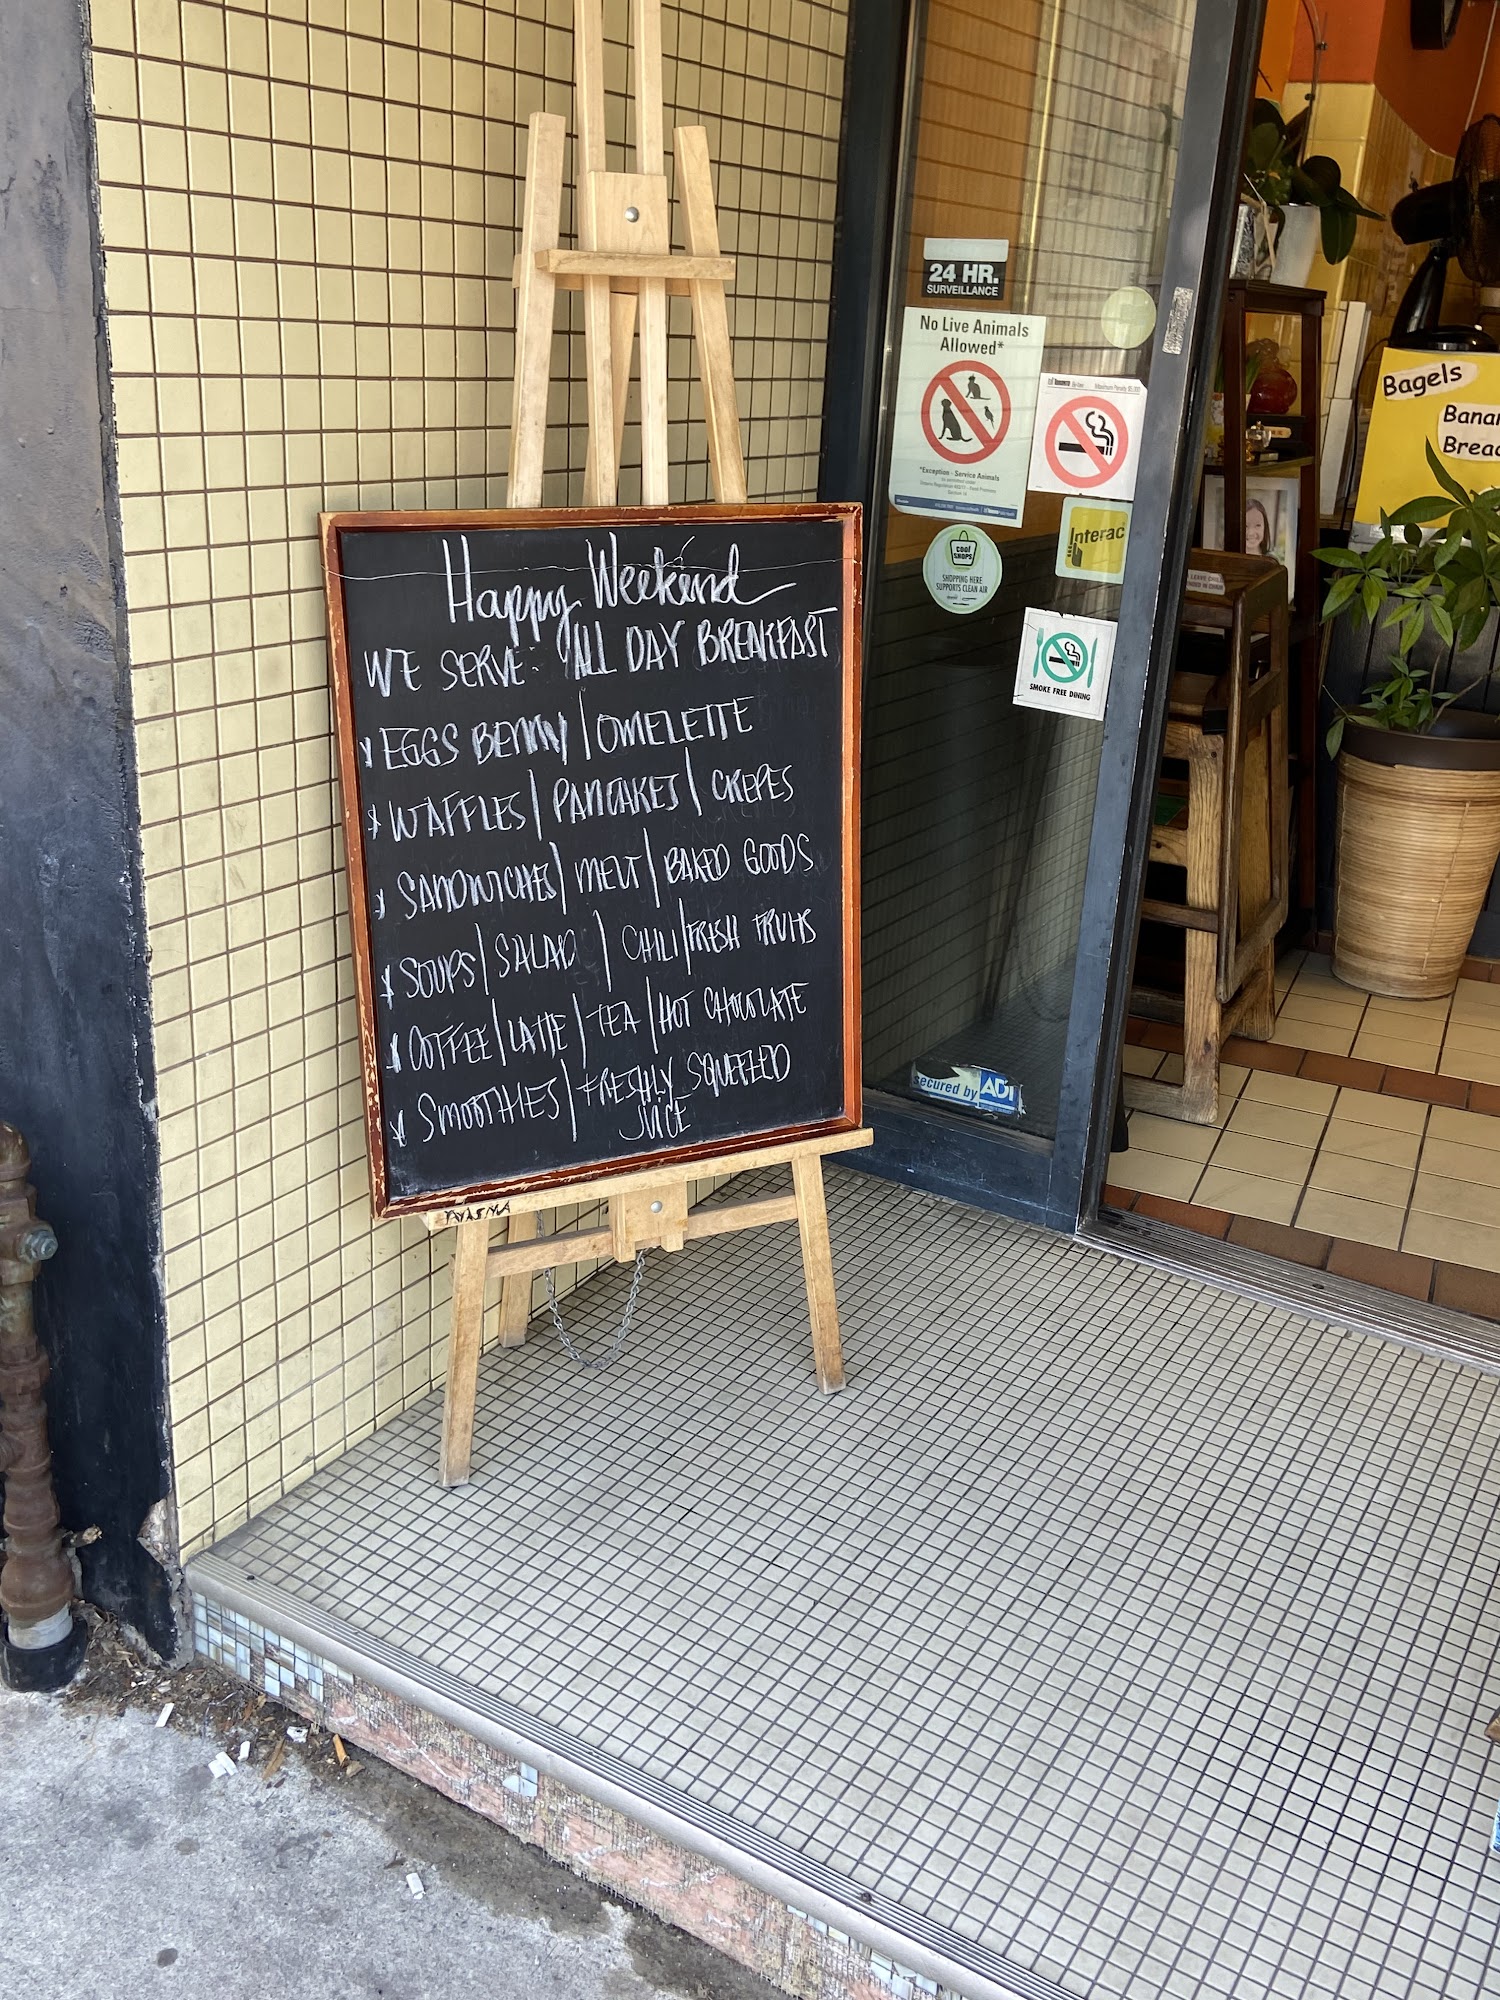 Happy Weekend
WE SERVE: ALL DAY BREAKFAST
* EGGS BENNY | OMELETTE
* WAFFLES | PANCAKES | CREPES
* SANDWICHES | MELT | BAKED GOODS
* SOUPS | SALAD | CHILI | FRESH FRUITS
* COFFEE | LATTE | TEA | HOT CHOCOLATE
* SMOOTHIES | FRESHLY SQUEEZED
JUICE
24 HR.
SURVEILLANCE
No Live Animals
Allowed*
*Exception - Service Animals
Toronto
Interac
cool
SHOPS
SHOPPING HERE
SUPPORTS CLEAN AIR
SMOKE FREE DINING
secured by ADT
Bagels
Banan
Bread